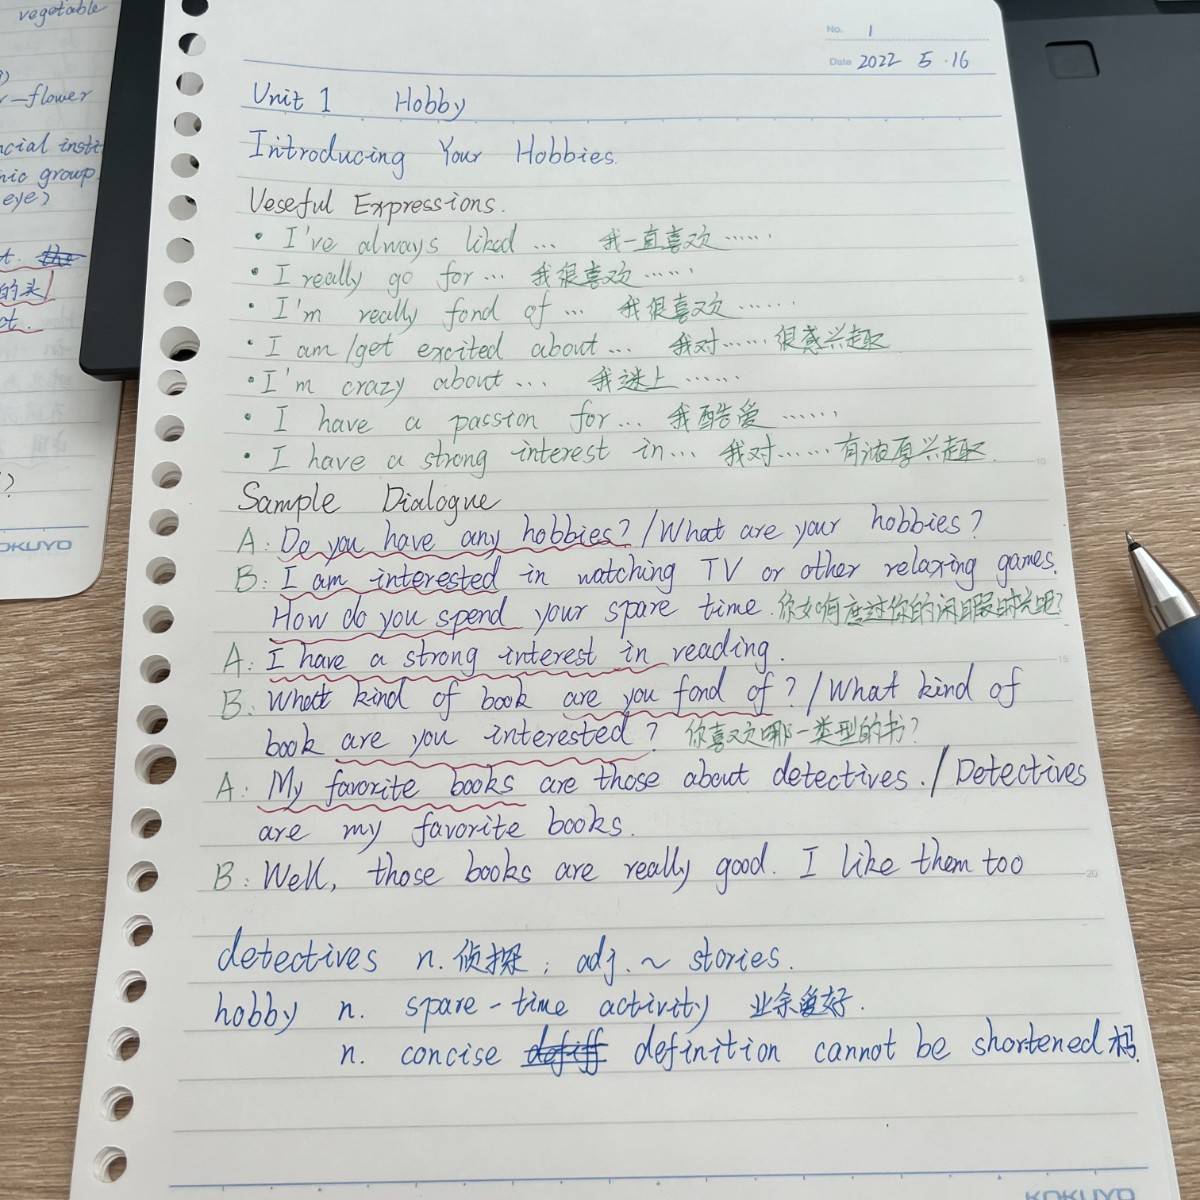 vegetable
-flower
ncial insti
nic group.
eye)
t.
的头
ot.
KOKUYO
No. 1
Date 2022 5.16
Unit 1 Hobby
Introducing Your Hobbies.
Veseful Expressions.
• I've always liked ... 我一直喜欢……
• I really go for ... 我很喜欢……
• I'm really fond of ... 我很喜欢……
• I am/get excited about ... 我对……很感兴趣
• I'm crazy about ... 我迷上……
• I have a passion for ... 我酷爱……
• I have a strong interest in ... 我对……有浓厚兴趣.
Sample Dialogue
A: Do you have any hobbies? / What are your hobbies?
B: I am interested in watching TV or other relaxing games.
How do you spend your spare time. 你如何度过你的闲暇时光呢?
A: I have a strong interest in reading.
B: What kind of book are you fond of? / What kind of
book are you interested? 你喜欢哪一类型的书?
A: My favorite books are those about detectives. / Detectives
are my favorite books.
B: Well, those books are really good. I like them too
detectives n. 侦探; adj. ~ stories.
hobby n. spare-time activity 业余爱好.
n. concise definition cannot be shortened
5
10
15
20
KOKUYO